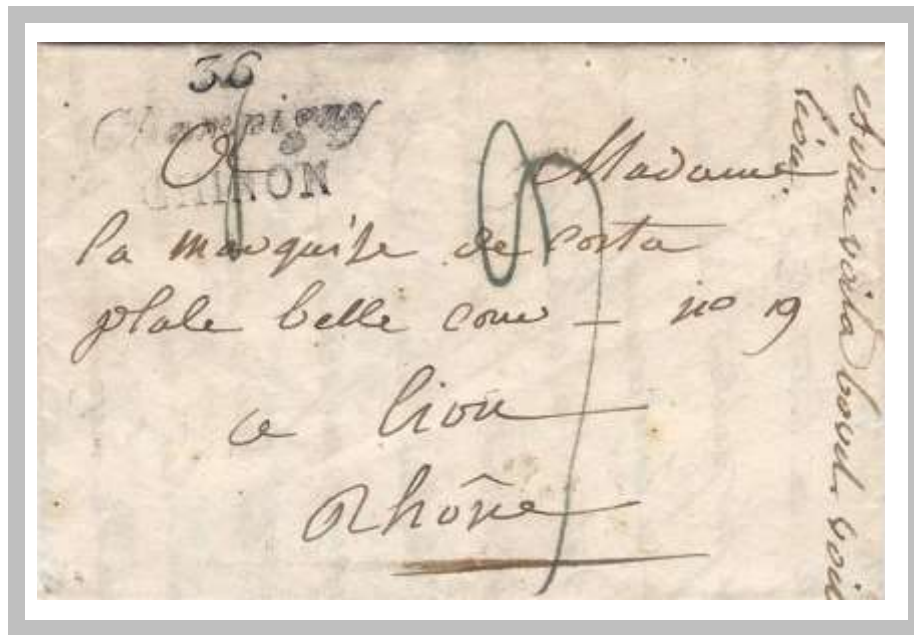 36
Champigny
CHINON
A Madame
la marquise de Costa
plale belle cour – no 19
a lion
Rhône
lion.